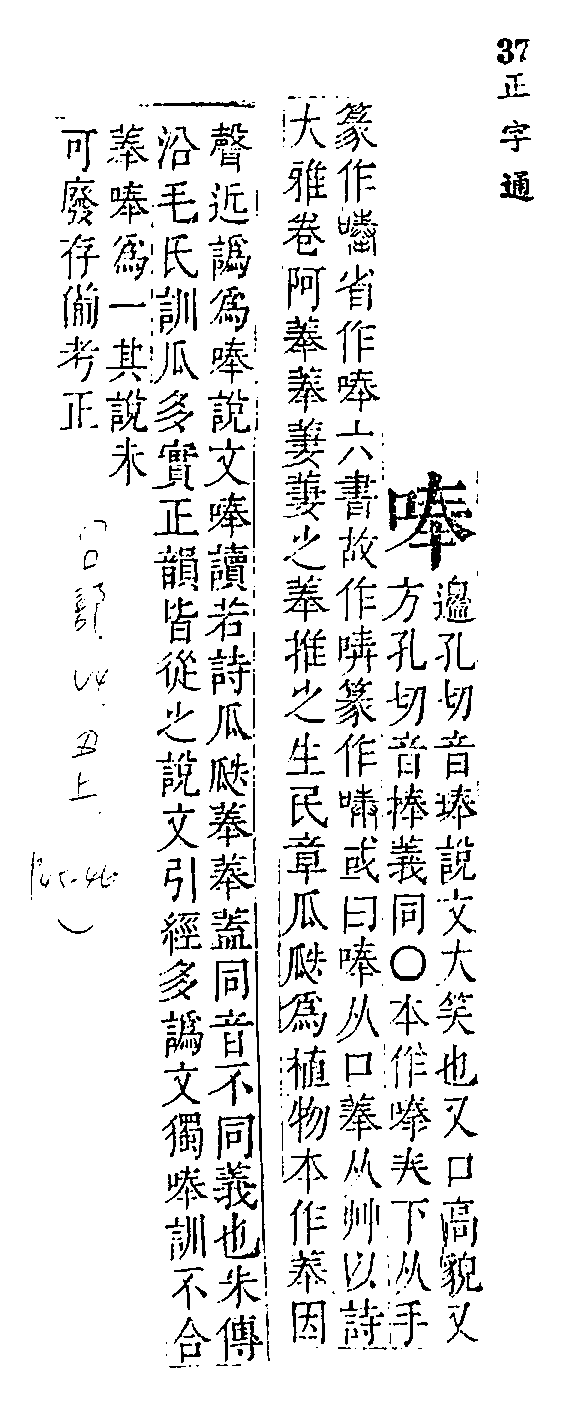 37
正字通
唪
邊孔切音琫說文大笑也又口高貌又
方孔切音捧義同○本作唪夫下从手
篆作 省作唪六書故作 篆作 或曰唪从口菶从艸以詩
大雅卷阿菶菶萋萋之菶推之生民章瓜瓞爲植物本作菶因
聲近譌爲唪說文唪讀若詩瓜瓞菶菶蓋同音不同義也朱傳
沿毛氏訓瓜多實正韻皆從之說文引經多譌文獨唪訓不合
菶唪爲一其說未
可廢存備考正
(口部
丑上
P45-46)